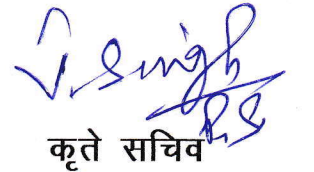 J. Singh
P.S
कृते सचिव